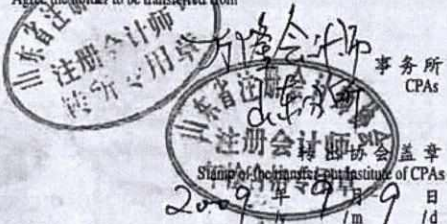 Agree the holder to be transferred from
山东省注册会计师
注册会计师
转所专用章
会计师
事务所
CPAs
山东省注册会计师协会
注册会计师
转出协会盖章
Stamp of the transfer-out Institute of CPAs
2009年9月9日
/m /d